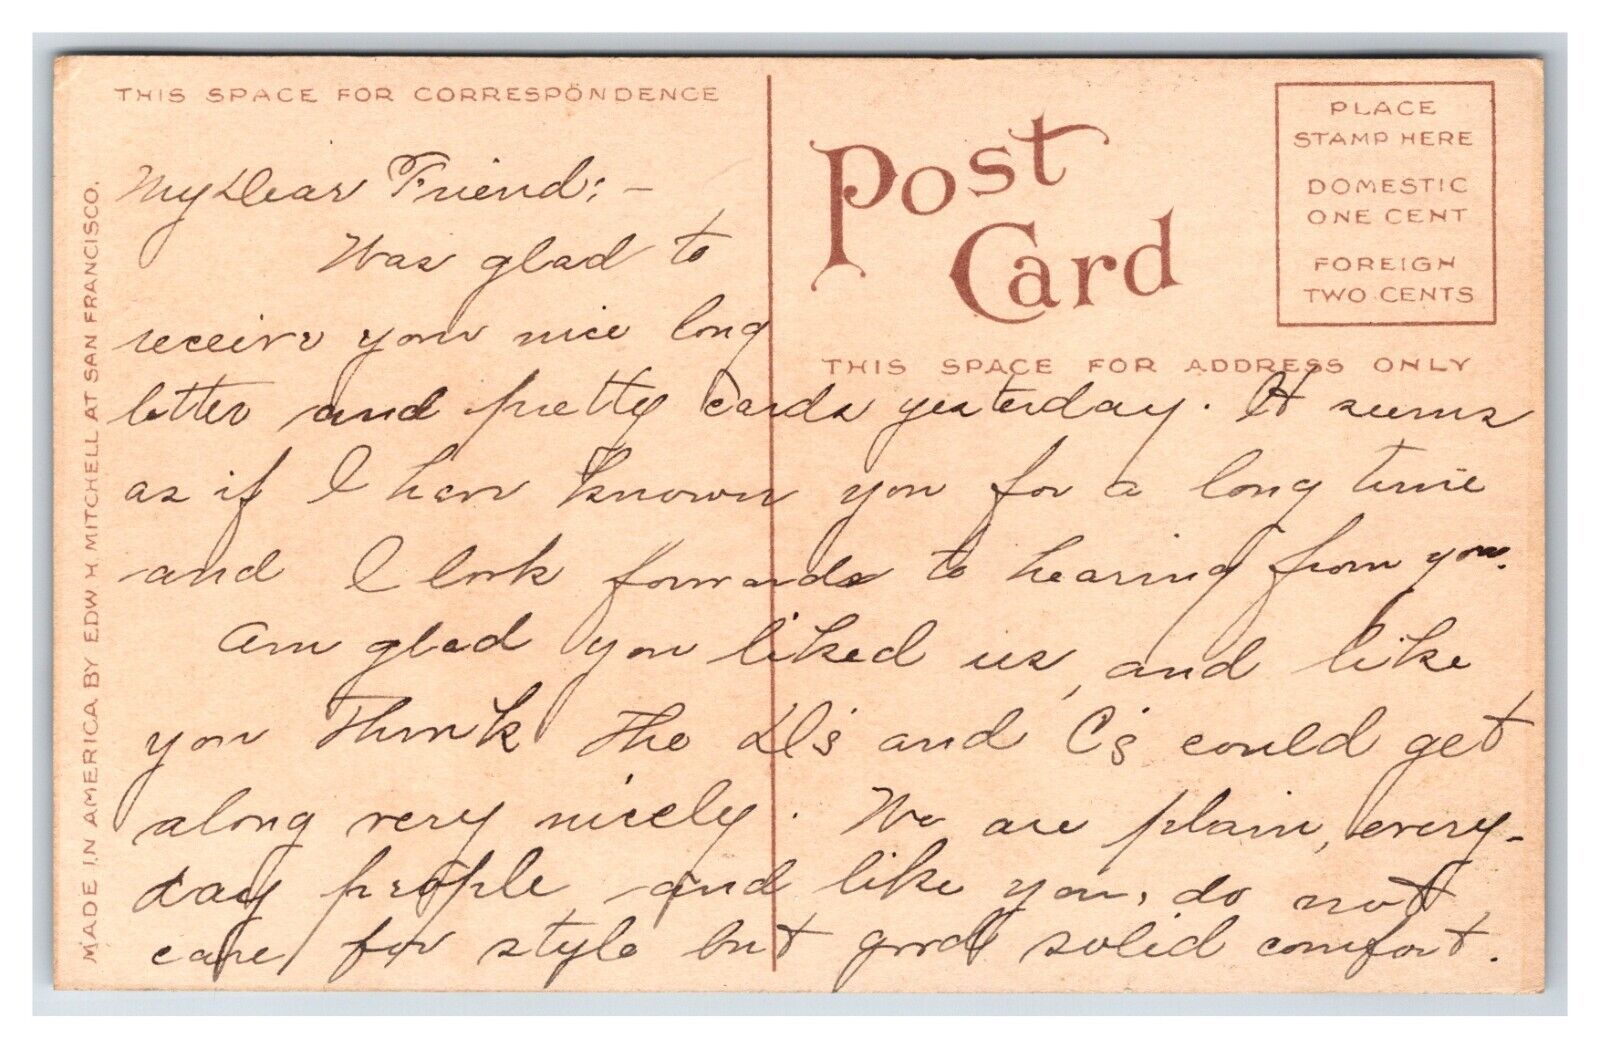 THIS SPACE FOR CORRESPÖNDENCE
Post
Card
PLACE
STAMP HERE
DOMESTIC
ONE CENT
FOREIGN
TWO CENTS
THIS SPACE FOR ADDRESS ONLY
MADE IN AMERICA BY EDW. H. MITCHELL AT SAN FRANCISCO.
My Dear Friend: -
Was glad to
receive your nice long
letter and pretty cards yesterday. It seems
as if I have known you for a long time
and I look forwards to hearing from you.
Am glad you liked us, and like
you think the D's and C's could get
along very nicely. We are plain, every-
day people and like you, do not
care for style but good solid comfort.